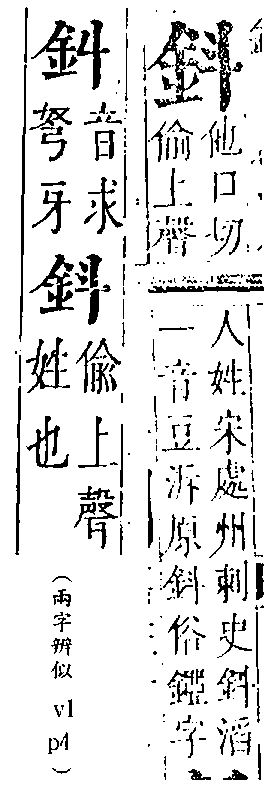 鈄
他口切
偷上聲
人姓宋處州刺史鈄滔
一音豆泝原鈄俗鋀字
音求
弩牙
鈄
偸上聲
姓也
（兩字辨似 v1 p4）